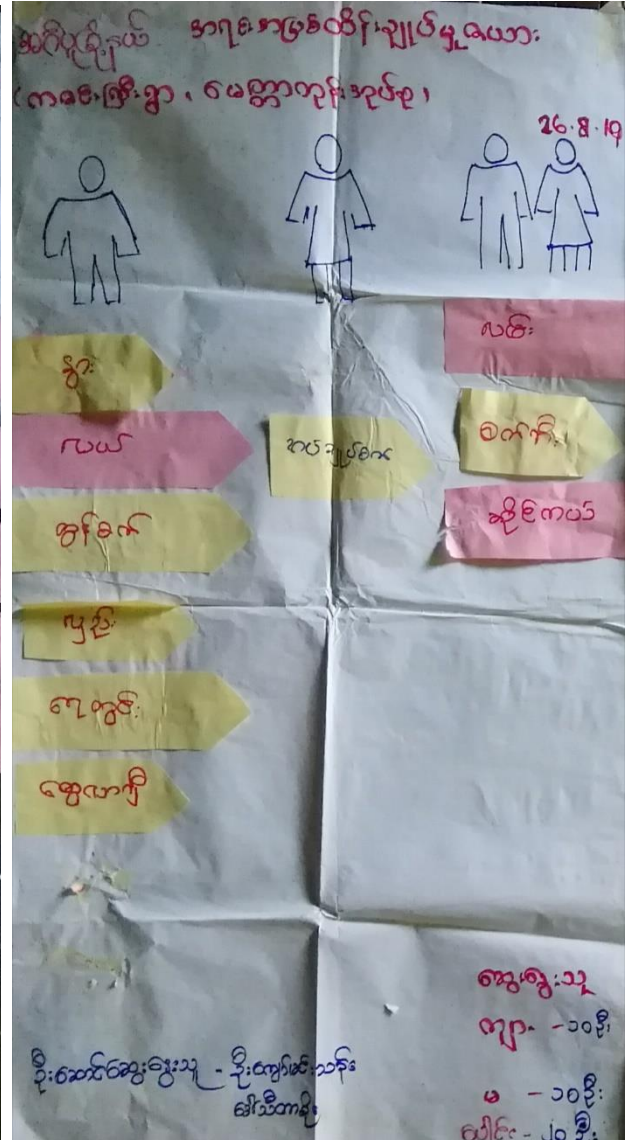 အင်္ဂပူမြို့နယ် အရင်းအမြစ်ထိန်းချုပ်မှုဇယား
(ကစဉ်းကြီးရွာ၊ မေတ္တာကုန်းအုပ်စု)
26.8.19
နွား
လယ်
ထွန်စက်
လှည်း
ရေတွင်း
ထွေလာဂျီ
အပ်ချုပ်စက်
လင်း
စက်ဘီး
ဆိုင်ကယ်
ဆွေးနွေးသူ
ကျား - ၁၀ဦး
မ - ၁၀ဦး
ပေါင်း - ၂၀ဦး
ဦးဆောင်ဆွေးနွေးသူ - ဦးကျော်မင်းသန်း